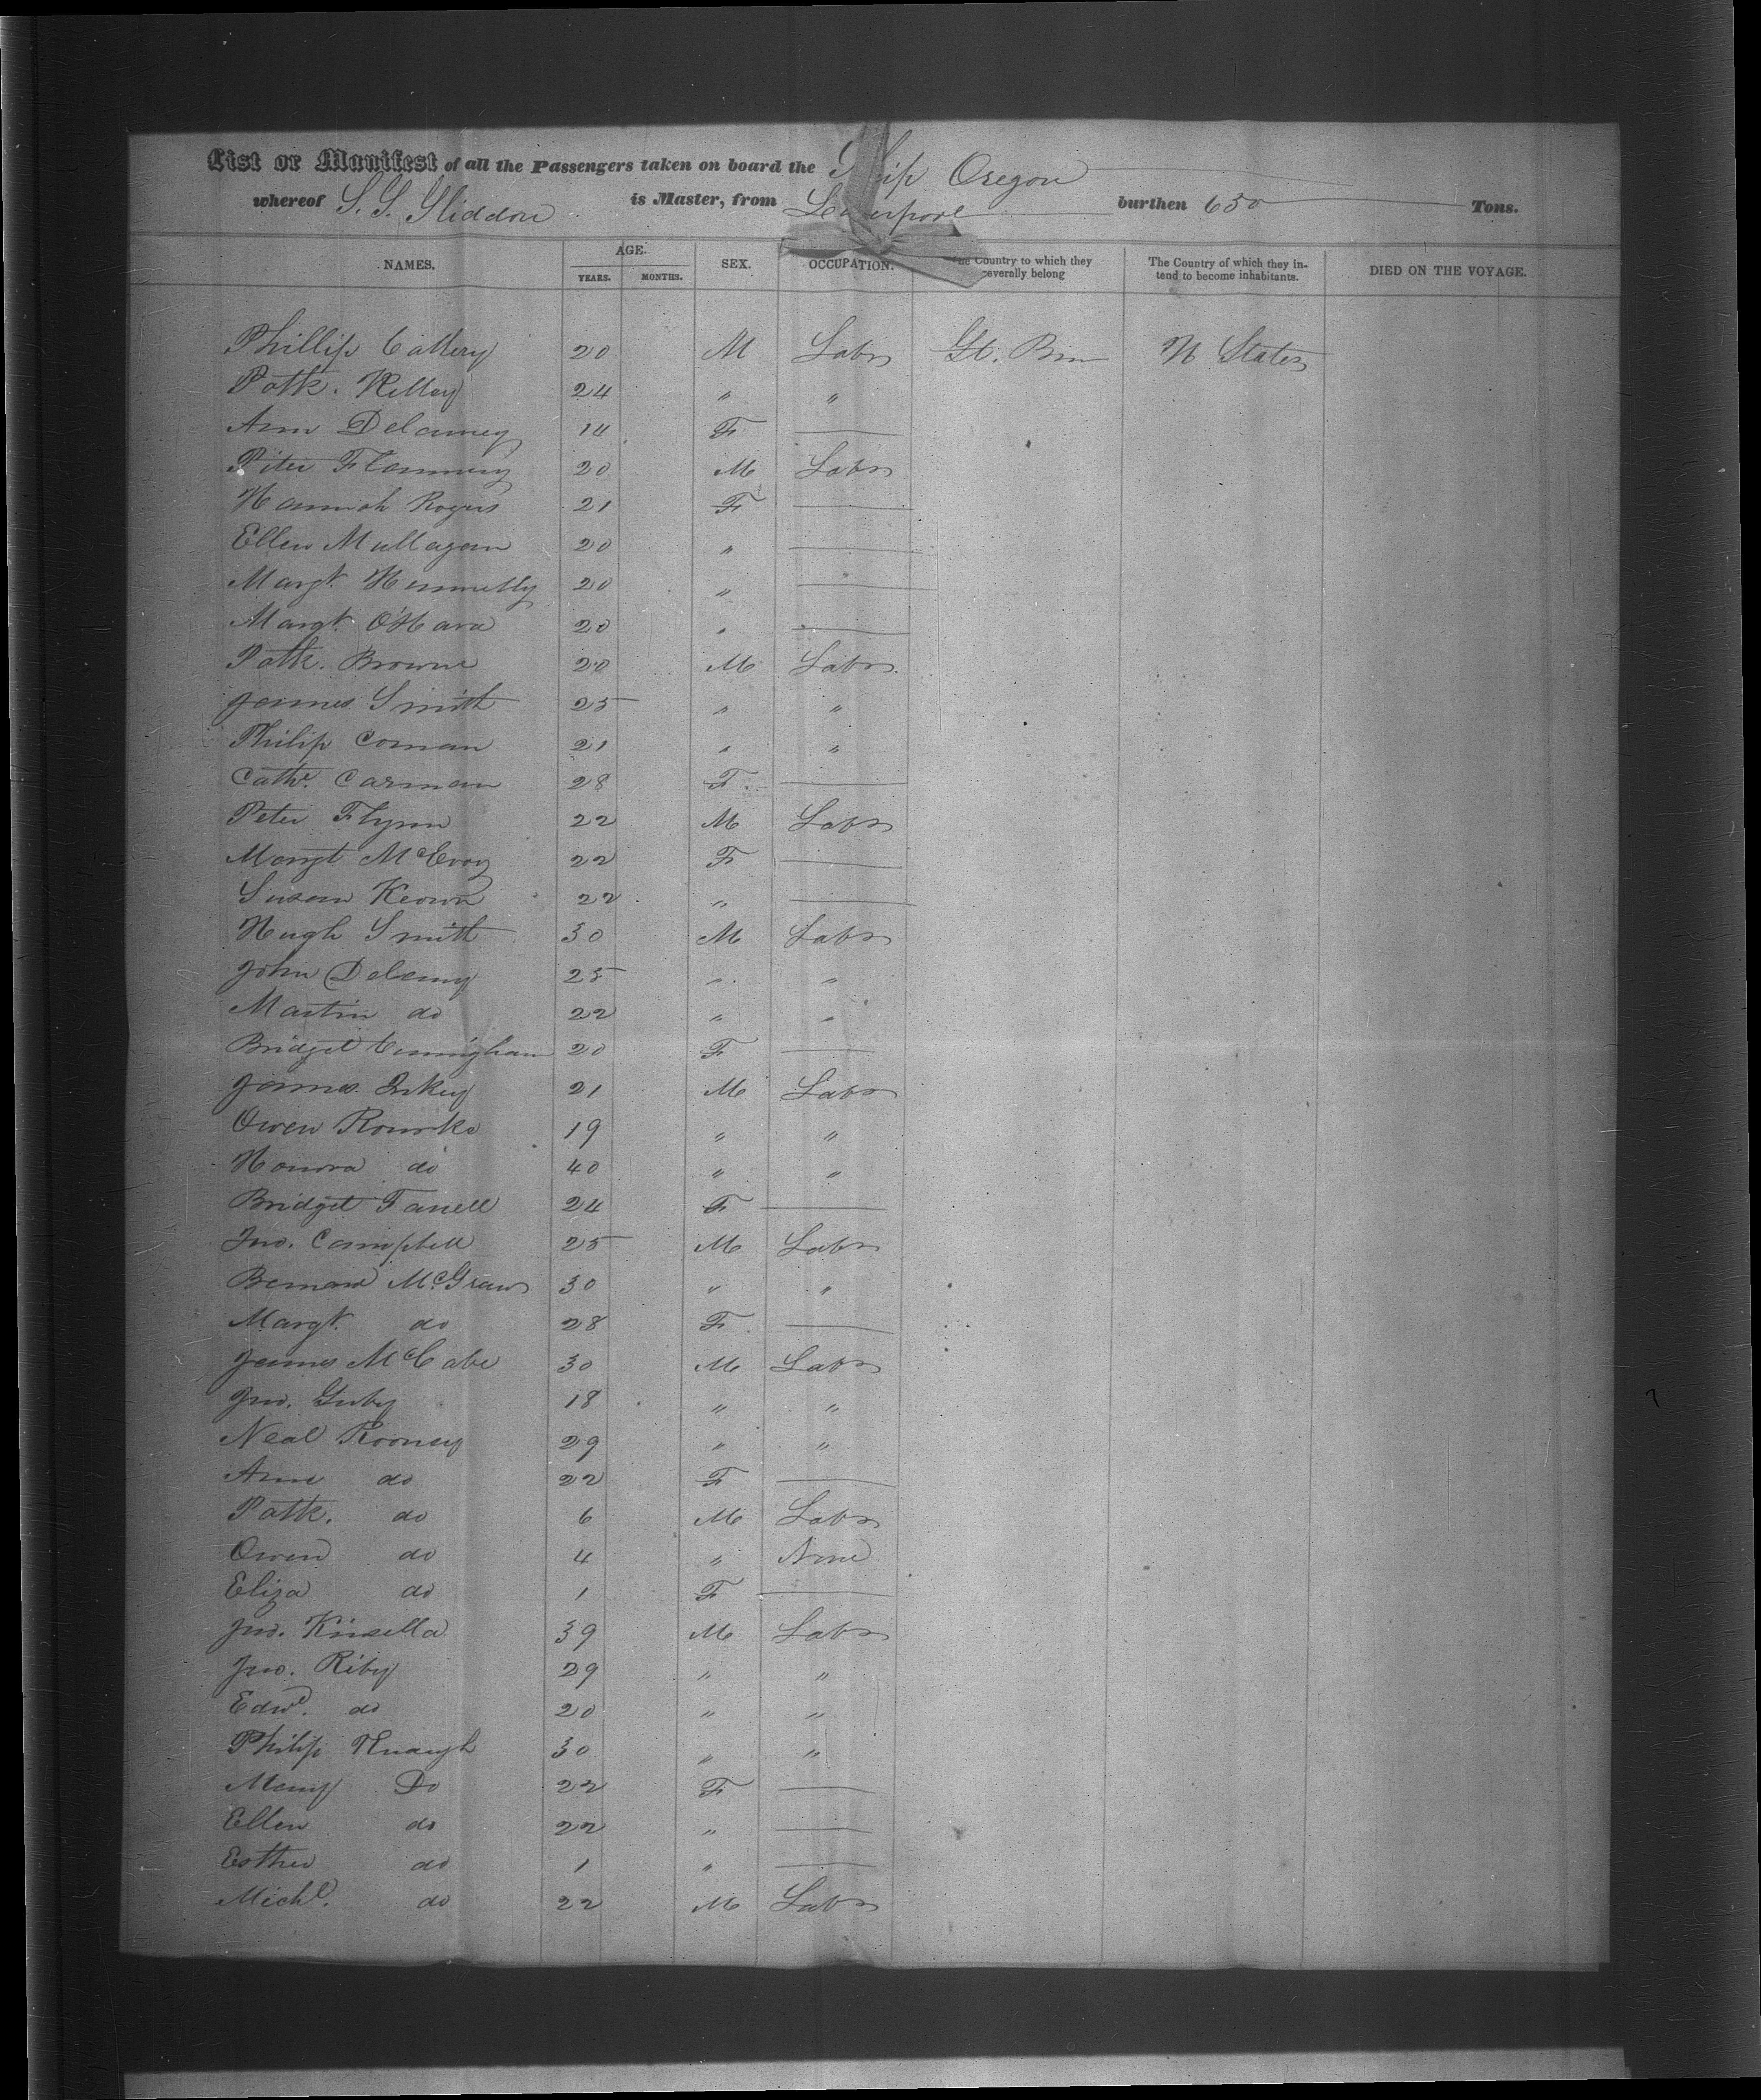 List or Manifest of all the Passengers taken on board the Ship Oregon
whereof S. S. Gliddon is Master, from Liverpool burthen 650 Tons.
NAMES. AGE. YEARS. MONTHS. SEX. OCCUPATION. The Country to which they severally belong The Country of which they intend to become inhabitants. DIED ON THE VOYAGE.
Phillip Caffery 20 M Labr Gt. Brn U States
Patk. Kelley 24 " "
Ann Delanney 14 F
Peter Flannery 20 M Labr
Hannah Rogers 21 F
Ellen Mullagan 20 "
Margt. Hunnelly 20 "
Margt. O'Hara 20 "
Patk. Browne 20 M Labr
James Smith 25 " "
Philip Coman 21 " "
Cathe. Carman 28 F
Peter Flynn 22 M Labr
Margt McEvoy 22 F
Susan Keown 22 "
Hugh Smith 30 M Labr
John Delany 25 " "
Martin do 22 " "
Bridget Cunningham 20 F
James 21 M Labr
Owen Rourke 19 " "
Honora do 40 " "
Bridget Farrell 24 F
Jno. Campbell 25 M Labr
Bernard McGraw 30 " "
Margt. do 28 F
James McCabe 30 M Labr
Jno. 18 " "
Neal Rooney 29 " "
Ann do 22 F
Patk. do 6 M Labr
Owen do 4 " None
Eliza do 1 F
Jno. Kinsella 39 M Labr
Jno. Riby 29 " "
Edwd. do 20 " "
Philip 30 " "
Mary Do 22 F
Ellen do 22 "
Esther do 1 "
Michl. do 22 M Labr